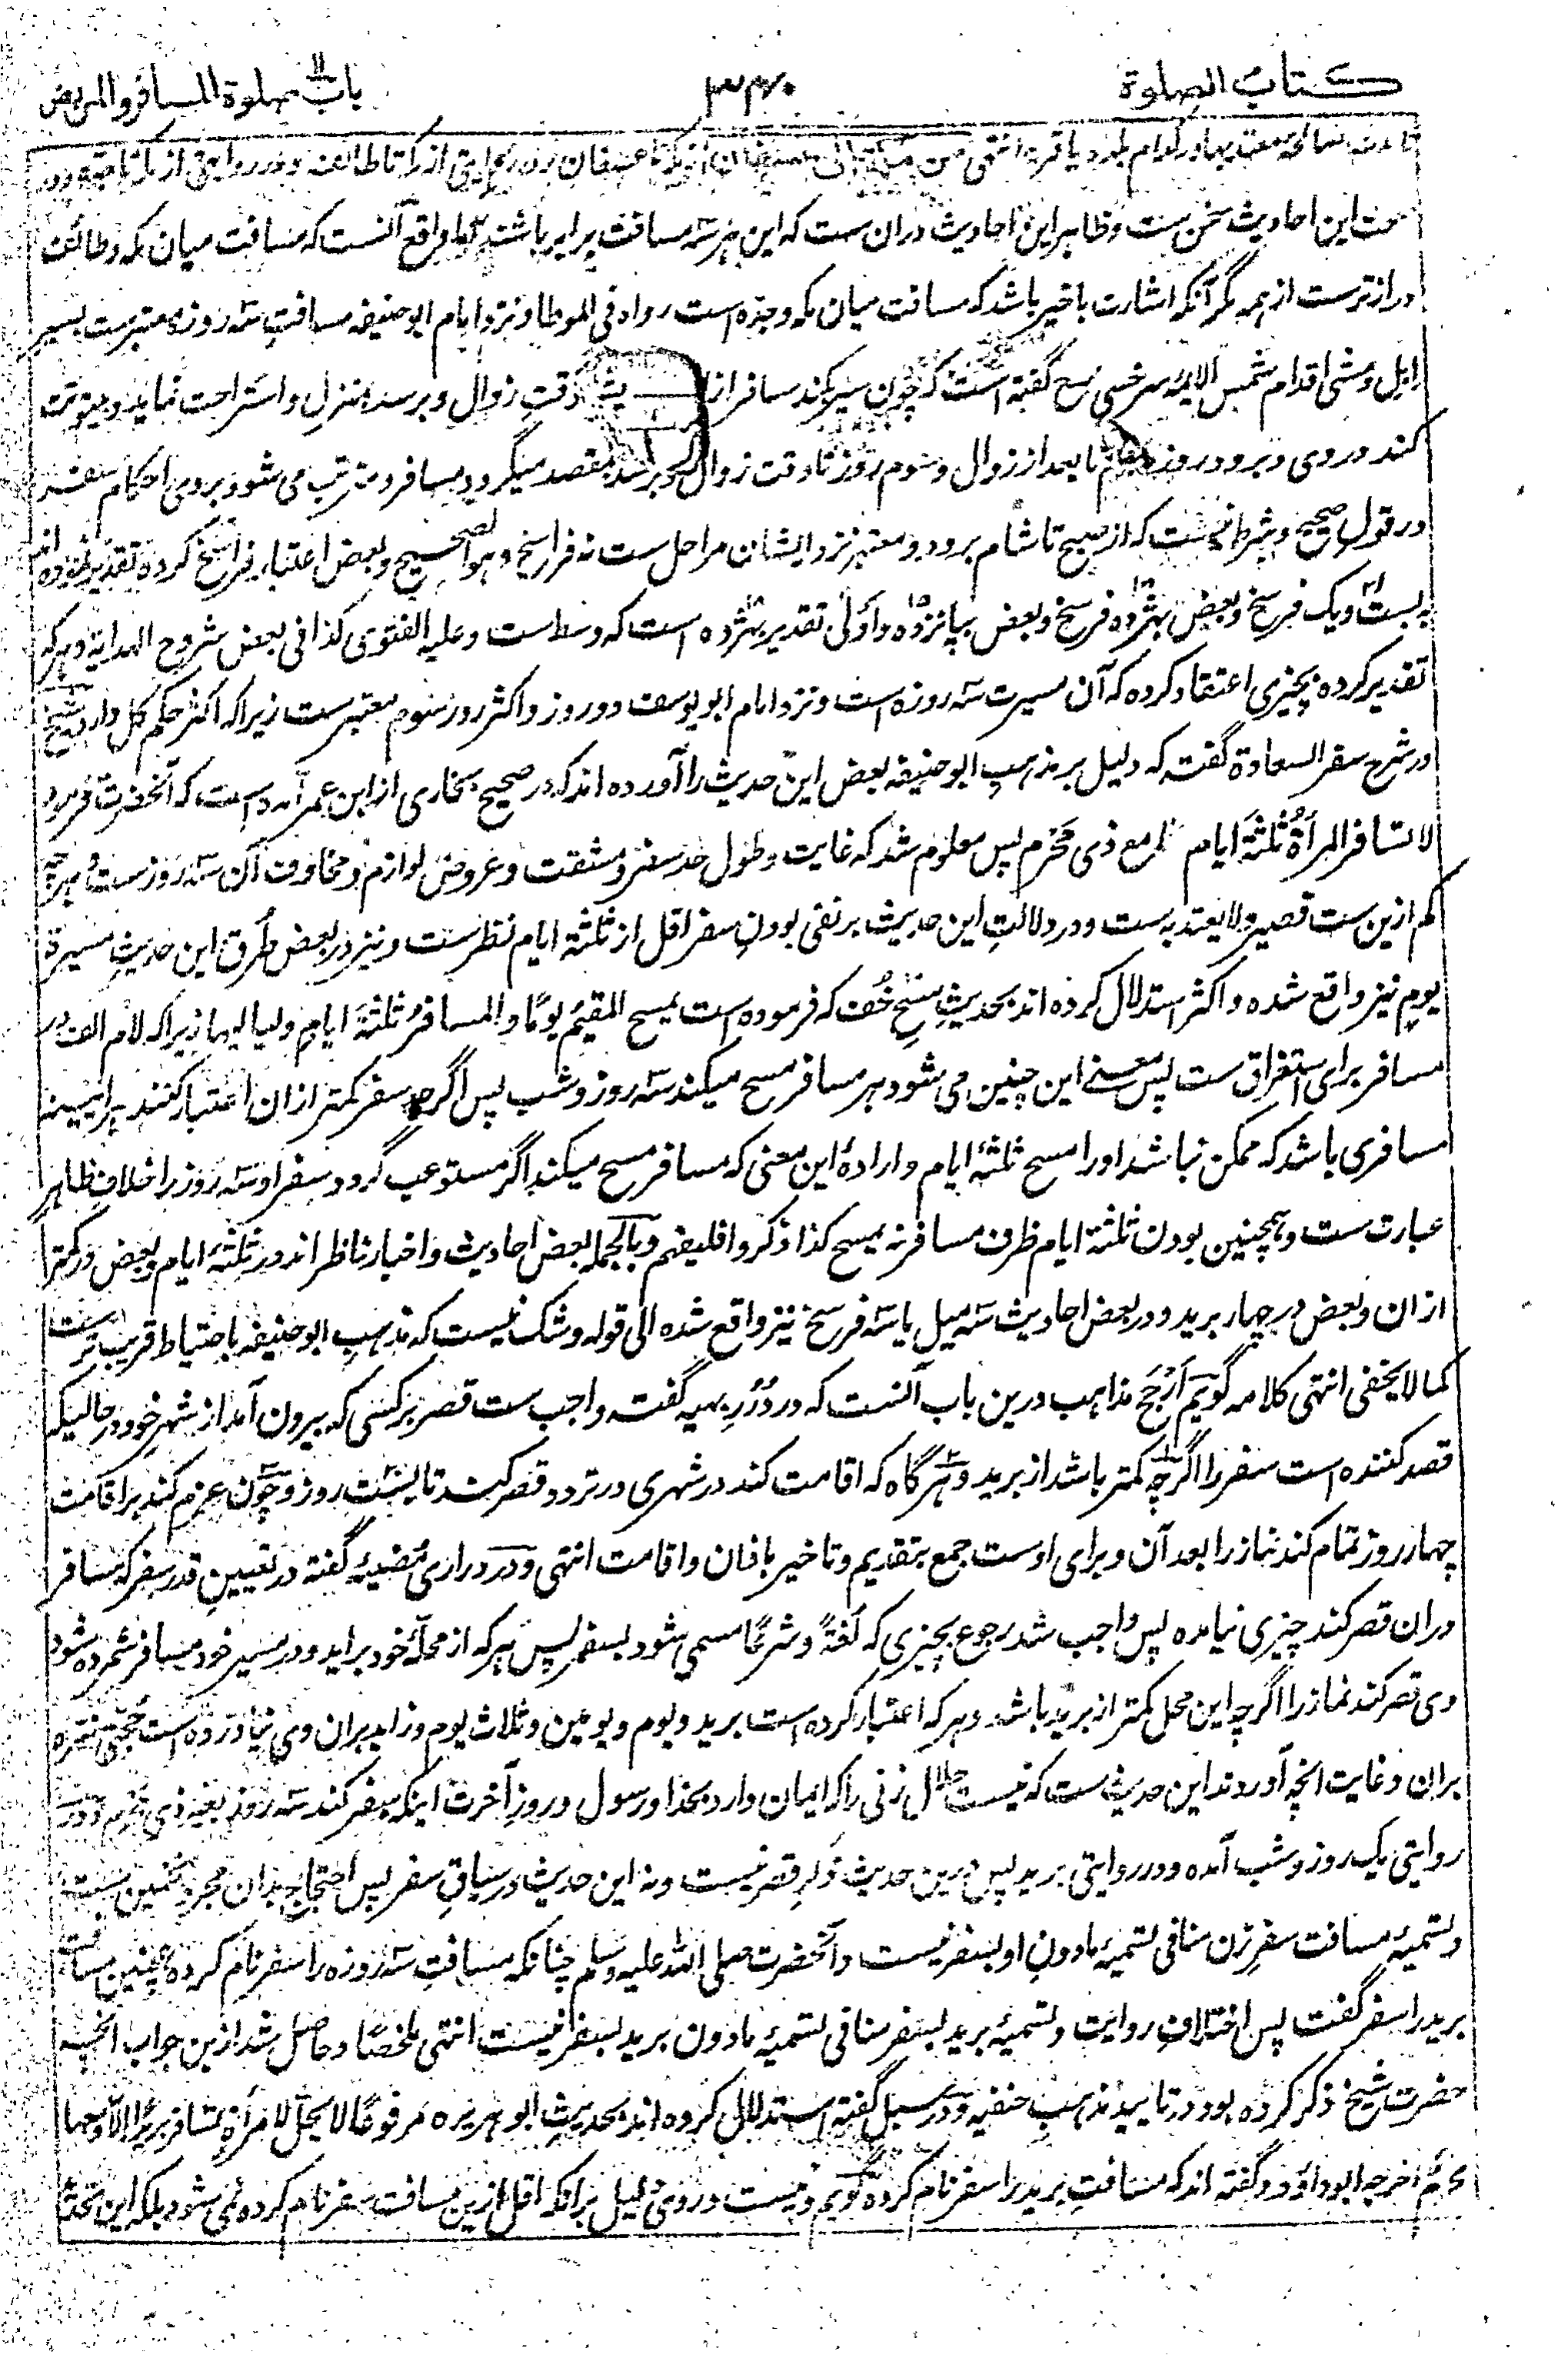 کتاب الصلوة
۳۴۰
باب صلوة المسافر والمریض
صحت این احادیث سخن ست وظاهر این احادیث دران ست که این هر سه مسافت برابر باشند واقع آنست که مسافت میان مکه وطائف
درازترست از همه مگر آنکه اشارت باخیر باشد که مسافت میان مکه وجده است رواه فی الموطا ونزد امام ابوحنیفه مسافتِ سه روزه معتبرست بسیر
ابل ومشی اقدام شمس الایمه سرخسی رح گفته است که چون سیر کند مسافر از وقتِ زوال وبرسد بمنزل واستراحت نماید وبیتوتت
کند در وی وبرود روز تا بعد از زوال وسوم روز تا وقت زوال وبرسد بمقصد میگردد مسافر ومترتب می شود بروی احکام سفر
در قولِ صحیح وشرط نیست که از صبح تا شام برود ومعتبر نزد ایشان مراحل ست نه فراسخ وهو الصحیح وبعض اعتبار فراسخ کرده تقدیر نموده اند
به بست ویک فرسخ وبعض بهژده فرسخ وبعض بپانزده واَولی تقدیر بهژده است که وسط ست وعلیه الفتوی کذا فی بعض شروح الهدایة وهرکه
تقدیر کرده بچیزی اعتقاد کرده که آن مسیرت سه روزه است ونزد امام ابویوسف دو روز واکثر روز سوم معتبرست زیراکه اکثر حکم کل دارد شیخ
در شرح سفر السعادة گفته که دلیل بر مذهبِ ابوحنیفه بعض این حدیث را آورده اند که در صحیح بخاری از ابن عمر آمده است که آنحضرت فرمود
لا تسافر المرأةُ ثلثةَ ایام مع ذی مَحْرم پس معلوم شد که غایت وطول حد سفر ومشقت وعروض لوازم ومخاوف آن سه روز ست وهرچه
کم ازین ست قصیر ولا یعتد به ست ودر دلالتِ این حدیث بر نفی بودنِ سفر اقل از ثلثة ایام نظر ست ونیز در بعض طُرق این حدیثِ مسیرة
یومٍ نیز واقع شده واکثر استدلال کرده اند بحدیثِ مسحِ خُف که فرموده است یمسح المقیمُ یومًا والمسافرُ ثلثةَ ایامٍ ولیالیها زیراکه لام الف در
مسافر برای استغراق ست پس معنے این چنین می شود هر مسافر مسح میکند سه روز وشب پس اگر حد سفر کمتر ازان اعتبار کنند هر آیینه
مسافری باشد که ممکن نباشد اورا مسح ثلثهٔ ایام وارادهٔ این معنی که مسافر مسح میکند اگر مستوعب گردد سفر او سه روز را خلافِ ظاهر
عبارت ست وهمچنین بودن ثلثة ایام ظرف مسافر نه یمسح کذا ذکروا فلیفهم وبالجمله بعض احادیث واخبار ناظر اند در ثلثهٔ ایام وبعض در کمتر
ازان وبعض در چهار برید ودر بعض احادیث سه میل یا سه فرسخ نیز واقع شده الی قوله وشک نیست که مذهبِ ابوحنیفه باحتیاط قریب ترست
کما لا یخفی انتهی کلامه گویم اَرجح مذاهب درین باب آنست که در دُرَرِ بهیه گفت واجب ست قصر بر کسی که بیرون آمد از شهرِ خود در حالیکه
قصد کننده است سفر را اگرچه کمتر باشد از برید وهر گاه که اقامت کند در شهری در تردد قصر کند تا بیست روز وچون عزم کند بر اقامت
چهار روز تمام کند نماز را بعد آن وبرای اوست جمع بتقدیم وتاخیر باذان واقامت انتهی ودر دراری مُضیئه گفته در تعیینِ قدرِ سفر که مسافر
دران قصر کند چیزی نیامده پس واجب شد رجوع بچیزی که لغةً وشرعًا مسمی شود بسفر پس هر که از محلّه خود براید ودر سیر خود مسافر شمرده شود
وی قصر کند نماز را اگرچه این محل کمتر از برید باشد وهر که اعتبار کرده است برید ویوم ویومین وثلاث یوم وزاید بران وی نیاورده است حجتی نیّره
بران وغایت انچه آوردند این حدیث ست که نیست حلال زنی را که ایمان دارد بخدا ورسول وروزِ آخرت اینکه سفر کند سه روز بغیر ذی محرم ودر
روایتی یک روز وشب آمده ودر روایتی برید پس درین حدیث ذکرِ قصر نیست ونه این حدیث در سیاقِ سفر پس احتجاج بدان مجرد تخمین ست
وتسمیهٔ مسافت سفرِ زن منافی تسمیهٔ مادونِ او بسفر نیست وآنحضرت صلی الله علیه وسلم چنانکه مسافتِ سه روزه را سفر نام کرده همچنین مسافت
برید را سفر گفت پس اختلافِ روایت وتسمیهٔ برید بسفر منافی تسمیهٔ مادون برید بسفر نیست انتهی ملخصًا وحاصل شد ازین جواب انچه
حضرت شیخ ذکر کرده بود در تایید مذهبِ حنفیه ودر سبل گفته استدلال کرده اند بحدیثِ ابو هریره مرفوعًا لا یحلّ لامرأةٍ تسافر بریدًا الا ومعها
محرم اخرجه ابوداؤد وگفته اند که مسافتِ برید را سفر نام کرده گویم ونیست دروی دلیل برانکه اقل ازین مسافت سفر نام کرده نمی شود بلکه این تحدید